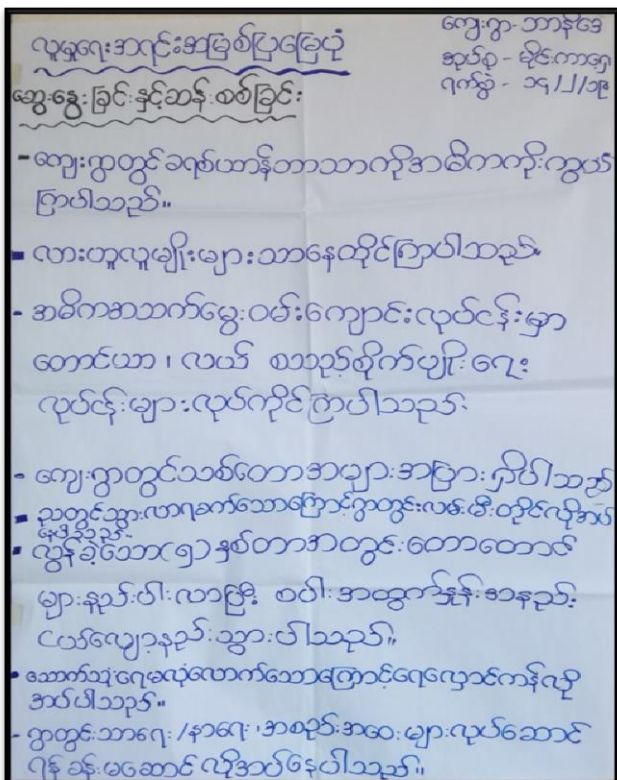 လူမှုရေးအရင်းအမြစ်ပြမြေပုံ
ကျေးရွာ-ဘာနဒေ
အုပ်စု - မိုင်းကာရှေ
ရက်စွဲ - ၁၄/၂/၁၉
ဆွေးနွေးခြင်းနှင့်ဆန်းစစ်ခြင်း
- ကျေးရွာတွင်ခရစ်ယာန်ဘာသာကိုအဓိကကိုးကွယ်
ကြပါသည်။
- လားဟူလူမျိုးများသာနေထိုင်ကြပါသည်။
- အဓိကအသက်မွေးဝမ်းကျောင်းလုပ်ငန်းမှာ
တောင်ယာ၊ လယ် စသည့်စိုက်ပျိုးရေး
လုပ်ငန်းများလုပ်ကိုင်ကြပါသည်။
- ကျေးရွာတွင်သစ်တောအများအပြားရှိပါသည်
- ညတွင်သွားလာရခက်သောကြောင့်ရွာတွင်းလမ်းမီးတိုင်လိုအပ်
နေပါသည်။
- လွန်ခဲ့သော(၅)နှစ်တာအတွင်းတောတောင်
များနည်းပါးလာပြီး စပါးအထွက်နှုန်းအနည်း
ငယ်လျော့နည်းသွားပါသည်။
- သောက်သုံးရေမလုံလောက်သောကြောင့်ရေလှောင်ကန်လို
အပ်ပါသည်။
- ရွာတွင်းသာရေး/နာရေး၊အစည်းအဝေးများလုပ်ဆောင်
ရန်ခန်းမဆောင်လိုအပ်နေပါသည်။